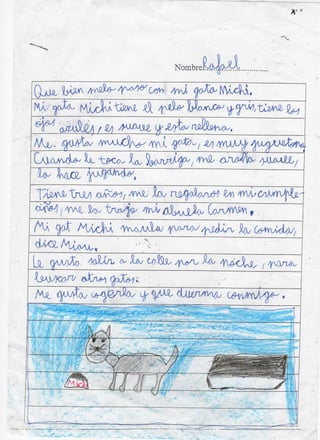 Nombre: Rafael
Que bien melo paso con mi gata Michi.
Mi gata Michi tiene el pelo blanco y gris, tiene los
ojos azules, es suave y esta rellena.
Me gusta mucho mi gata, es muy juguetona
Cuando le toca la barriga, me araña suave,
lo hace jugando.
Tiene tres años, me la regalaron en mi cumple-
años, me la trajo mi abuela Carmen.
Mi gat Michi maulla para pedir la comida,
dice Miau.
Le gusta salir a la calle por la noche, para
buscar otros gatos.
Me gusta cogerla y que duerma conmigo.
Michi